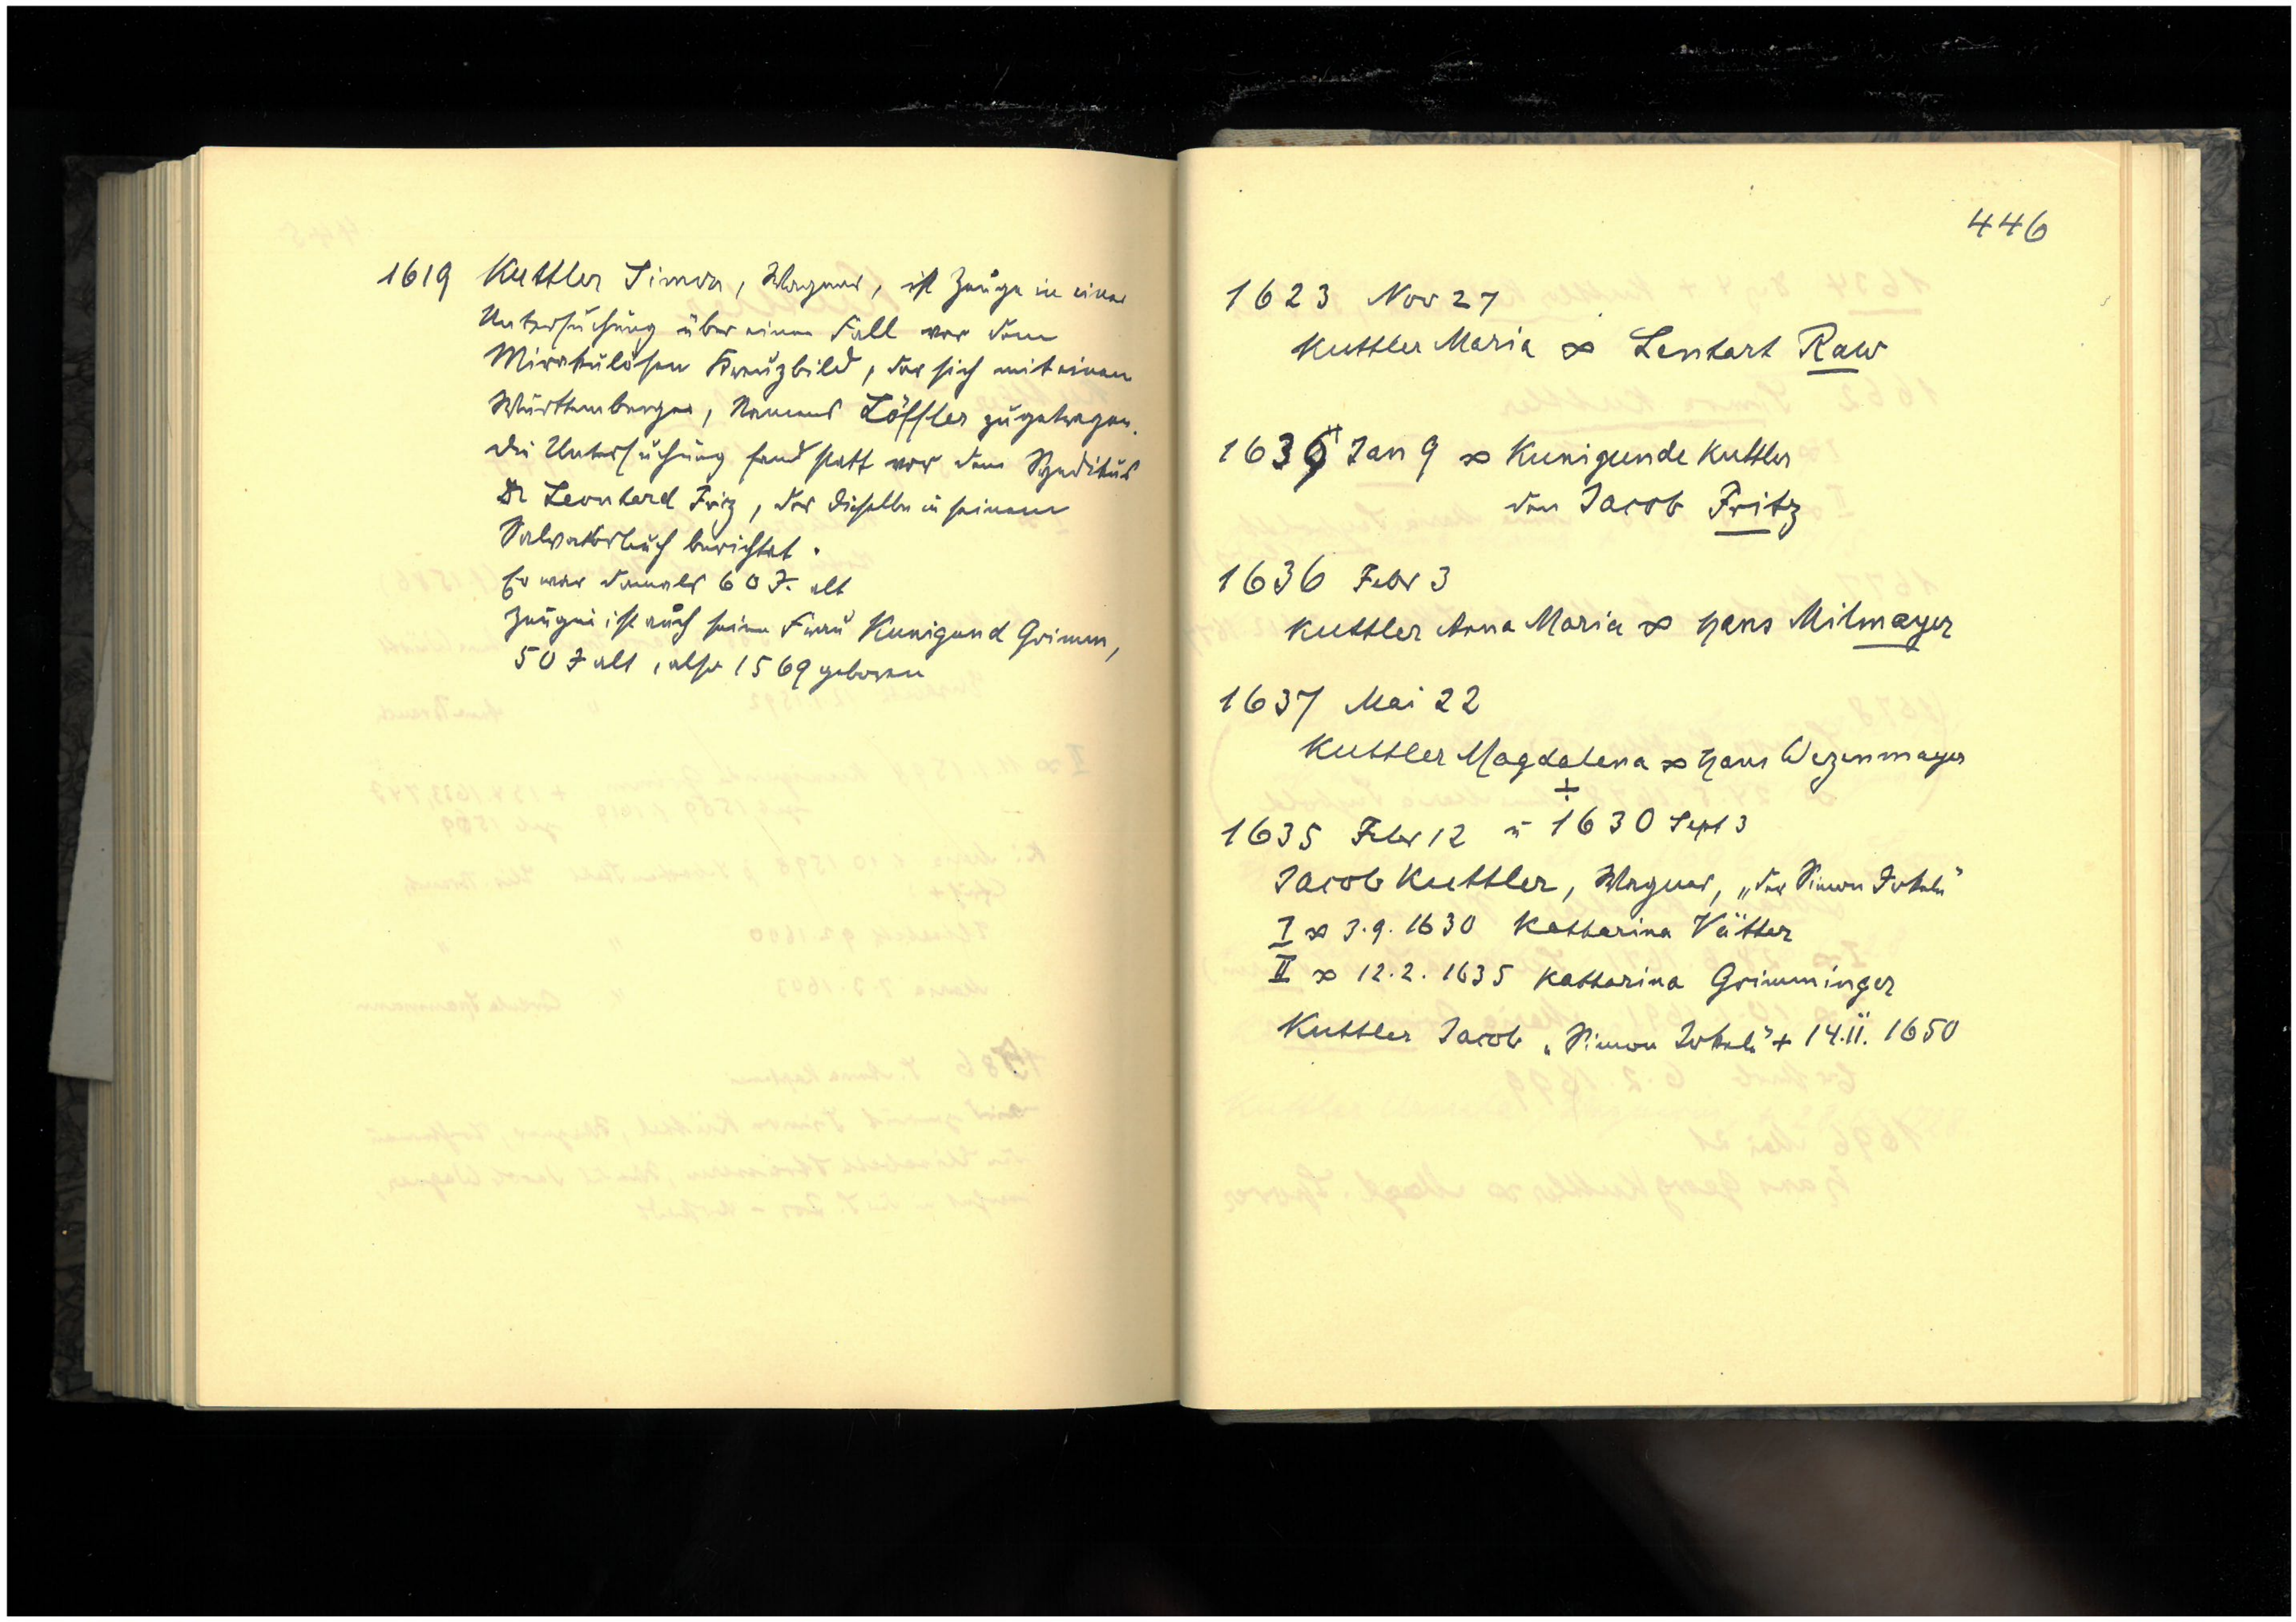 1619 Kuttler Simon, Wagner, ist Zeuge in einer
Untersuchung über einen Fall vor dem
Mirakulösen Kreuzbild, der sich mit einem
Württemberger, Namens Löffler zugetragen.
Die Untersuchung fand statt vor dem Syndikus
Dr Leonhard Friz, der dieselbe in seinem
Salvatorbuch berichtet.
Er war damals 60 J. alt
Zeugin ist auch seine Frau Kunigund Grimm,
50 J alt, also 1569 geboren
446
1623 Nov 27
Kuttler Maria ∞ Lenhart Raw
1636 Jan 9 ∞ Kunigunde Kuttler
den Jacob Fritz
1636 Febr 3
Kuttler Anna Maria ∞ Hans Milmayer
1637 Mai 22
Kuttler Magdalena ∞ Hans Wezenmayer
+
1635 Febr 12 u 1630 Sept 3
Jacob Kuttler, Wagner, „der Simon Jokele"
I ∞ 3.9.1630 Katharina Vätter
II ∞ 12.2.1635 Katharina Grimminger
Kuttler Jacob „Simon Jokele" + 14.II.1650